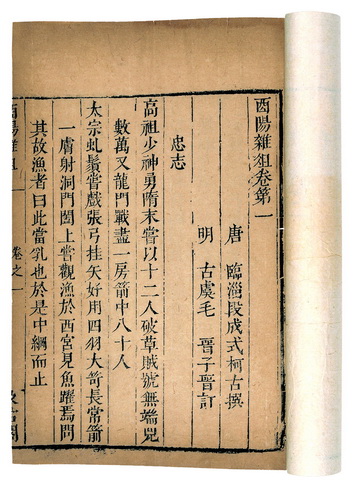 酉陽雜俎卷第一
唐 臨淄段成式柯古撰
明 古虞毛 晉子晉訂
忠志
高祖少神勇隋末嘗以十二人破草賊號無端兒
數萬又龍門戰盡一房箭中八十人
太宗虬鬚嘗戲張弓挂矢好用四羽大笴長常箭
一膚射洞門闔上嘗觀漁於西宮見魚躍焉問
其故漁者曰此當乳也於是中網而止
酉陽雜俎 卷之一 汲古閣